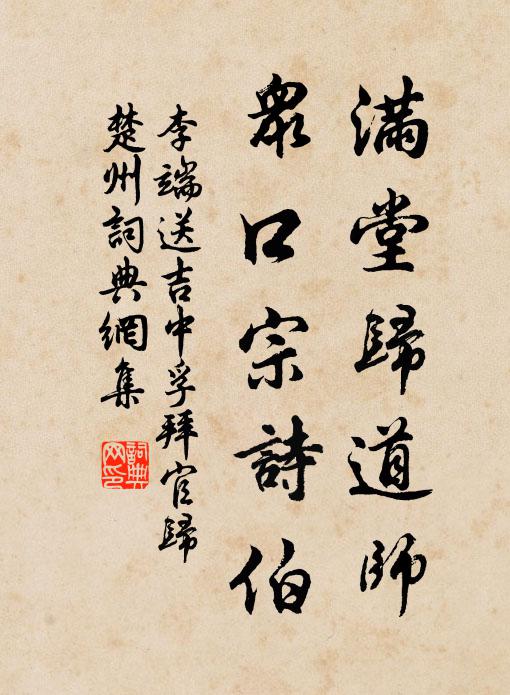 滿堂歸道師
眾口宗詩伯
李端送吉中孚拜官歸
楚州詞典網集
詞典
网印